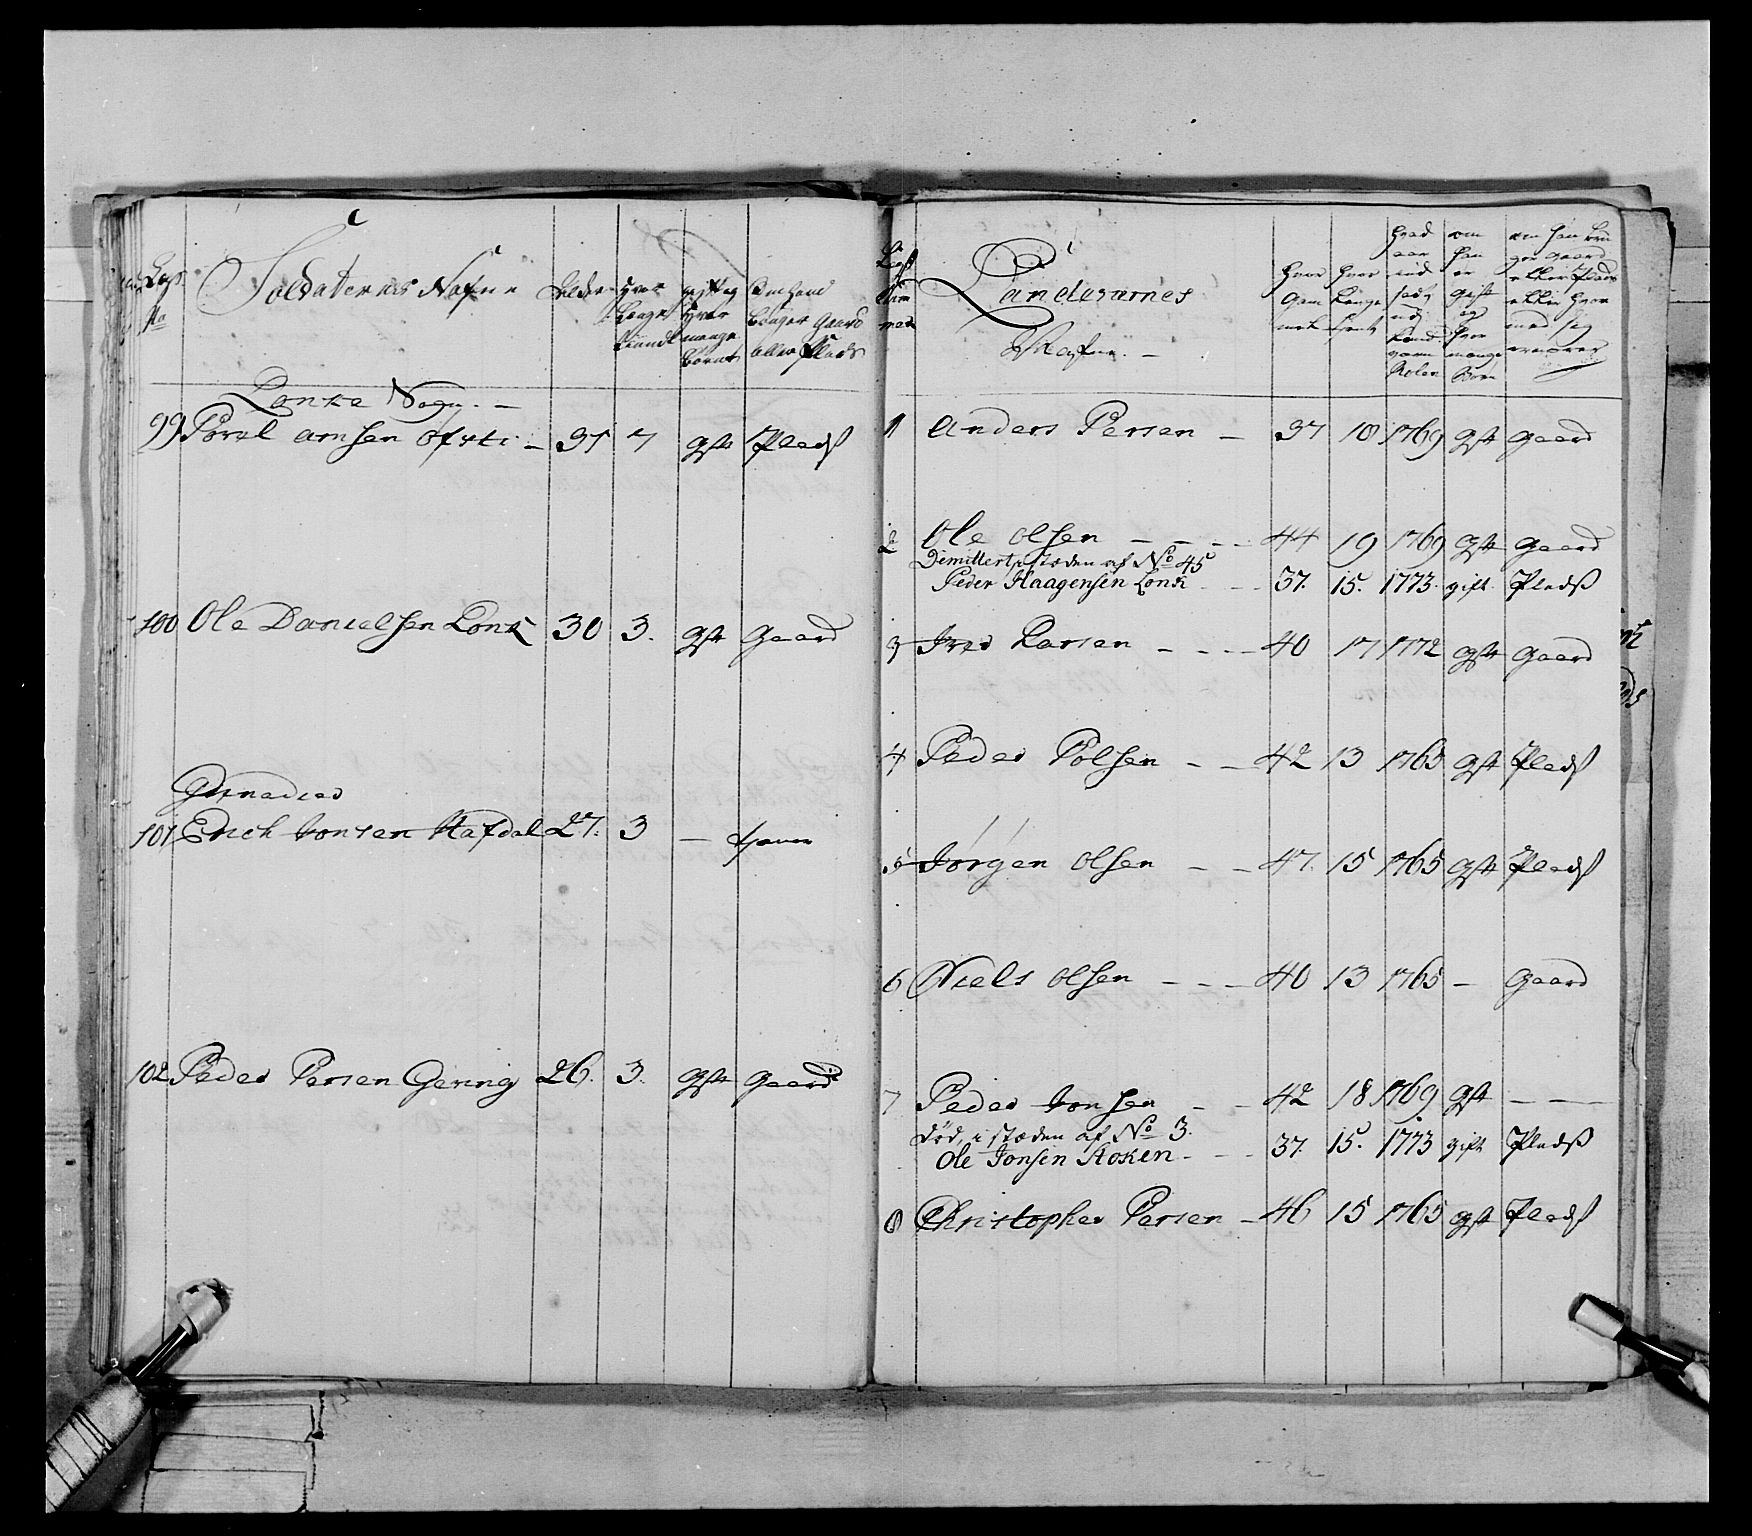 Lægs
No
Soldaternes Nafne
Alder
Hvor
Længe
tiendt
gift og
Hvor
mange
Børn
Om hand
bruger Gaard
eller Plads
Lonke Sogn. —
99 Povel Arnsen Øfsti — 37 7 gift Pladß
100 Ole Danielsen Lonk 30 3. gift Gaard
Grenadier
101 Erich Jonsen Hafdal 27. 3 —
102 Peder Persen Gering 26. 3. gift Gaard
Num
mer
Landvernes
Nafne. —
Hvor
Gam
mel
Hvor
Længe
tient
hvad
aar
ind
sadt
udj
Land
værn
Rolen
om
han
er
Gift
og
hvor
mange
Børn
om han bru
ger gaard
eller Plads
eller hvor
med sig
ernærer
1 Anders Persen — 37 10 1769 gift Gaard
2 Ole Olsen — — — 44 19 1769 gift Gaard
Dimittert, i stæden af No 45
Peder Haagensen Lonk — — 37. 15. 1773. gift Pladß
3 Iver Larsen — — — 40 17 1772 gift Gaard
4 Peder Polsen — — 42 13 1765 gift Pladß
5 Jørgen Olsen — — 47. 15 1765 gift Pladß
6 Niels Olsen — — — 40 13 1765 — Gaard
7 Peder Jonsen — — 42 18 1769 gift — —
død, i stæden af No 3.
Ole Jonsen Stoken — — 37. 15. 1773 gift Pladß
8 Christopher Persen — 46 15 1765 gift Pladß